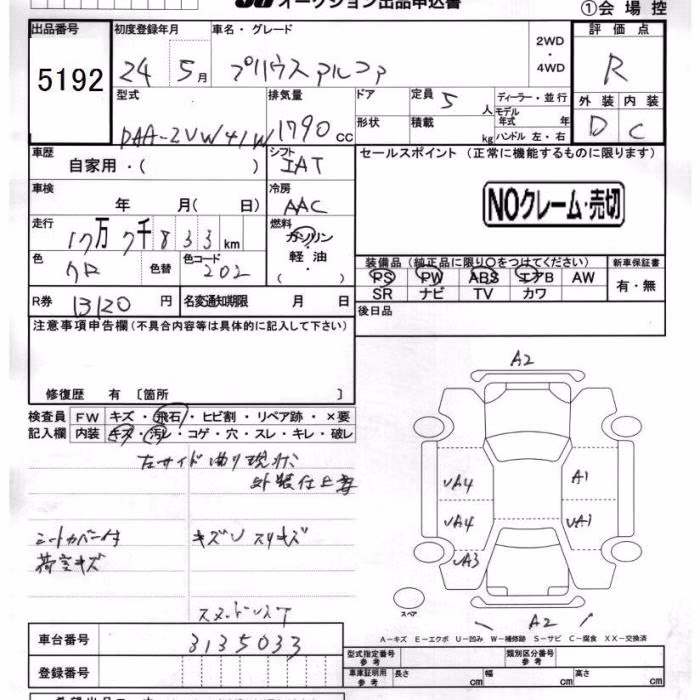 オークション出品申込書
①会場控
出品番号 初度登録年月 車名・グレード 2WD・4WD 評価点
5192 24 5月 プリウスアルファ R
型式 排気量 ドア 定員 5人 ディーラー・並行 外装 内装
DAA-ZVW41W 1790cc 形状 積載 kg モデル年式 年 ハンドル 左・右 D C
車歴 自家用・( ) シフト IAT セールスポイント (正常に機能するものに限ります)
車検 年 月( 日) 冷房 AAC NOクレーム・売切
走行 17万7千833km 燃料 ガソリン・軽油・( )
色 クロ 色替 色コード 202
装備品 (純正品に限り○をつけてください) 新車保証書
PS PW ABS エアB AW 有・無
SR ナビ TV カワ
R券 13120円 名変通知期限 月 日 後日品
注意事項申告欄 (不具合内容等は具体的に記入して下さい)
修復歴 有 〔箇所 〕
検査員 FW キズ・飛石・ヒビ割・リペア跡・×要
記入欄 内装 キズ・汚れ・コゲ・穴・スレ・キレ・破レ
左サイド曲り現状
外装仕上
シートカバー付 キズU スリキズ
荷室キズ
A2
UA4 A1
UA4 UA3
UA3
スペア
A2
A-キズ E-エクボ U-凹み W-補修跡 S-サビ C-腐食 XX-交換済
車台番号 3135033
型式指定番号 参考 類別区分番号 参考
登録番号
車庫証明用 参考 長さ cm 幅 cm 高さ cm